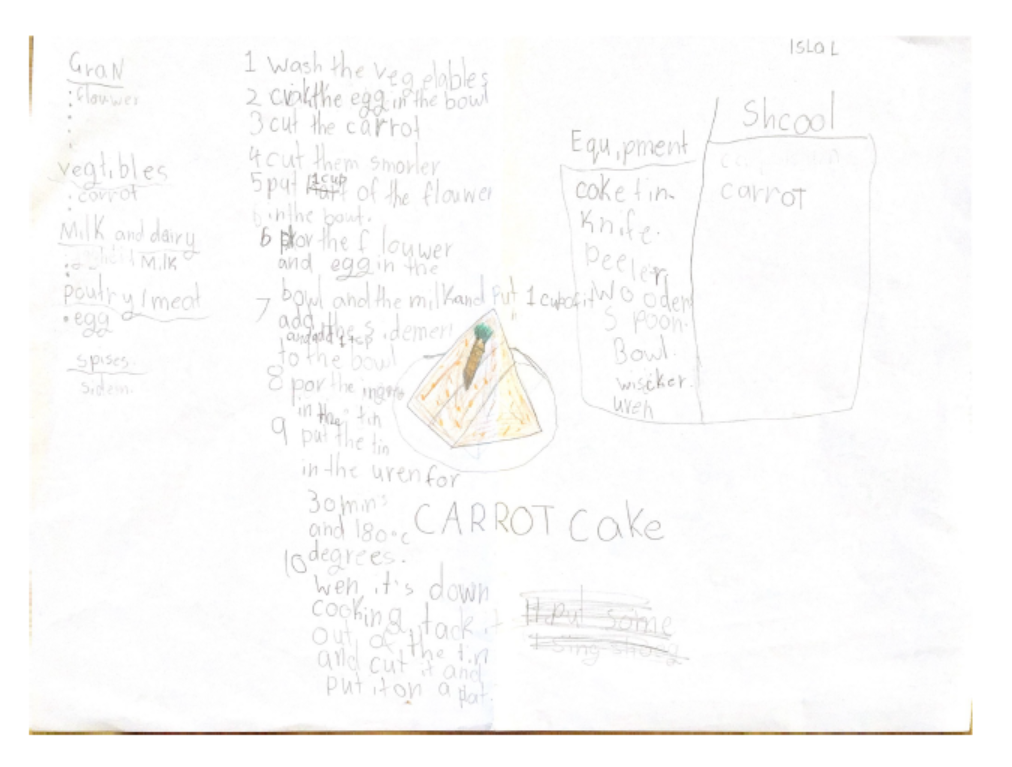 Gran
flouwer
vegtibles
carrot
Milk and dairy
Milk
poutry/meat
egg
spises.
sidem.
1 wash the vegetables
2 the egg in the bowl
3 cut the carrot
4 cut them smorler
5 put 1cup of the flouwer
in the bowl.
6 por the flouwer
and egg in the
bowl and the milk and Put 1 cup of it
7 add the
to the bowl
8 por the
in the tin
9 put the tin
in the uven for
30 mins
and 180°c
degrees.
10 wen it's down
cooking tack it
out of the tin
and cut it and
put it on a plat.
CARROT Cake
11 Put some
Equipment
cake tin.
Knife.
peeler
Wooden
spoon.
Bowl.
wiscker.
uven
Shcool
carrot